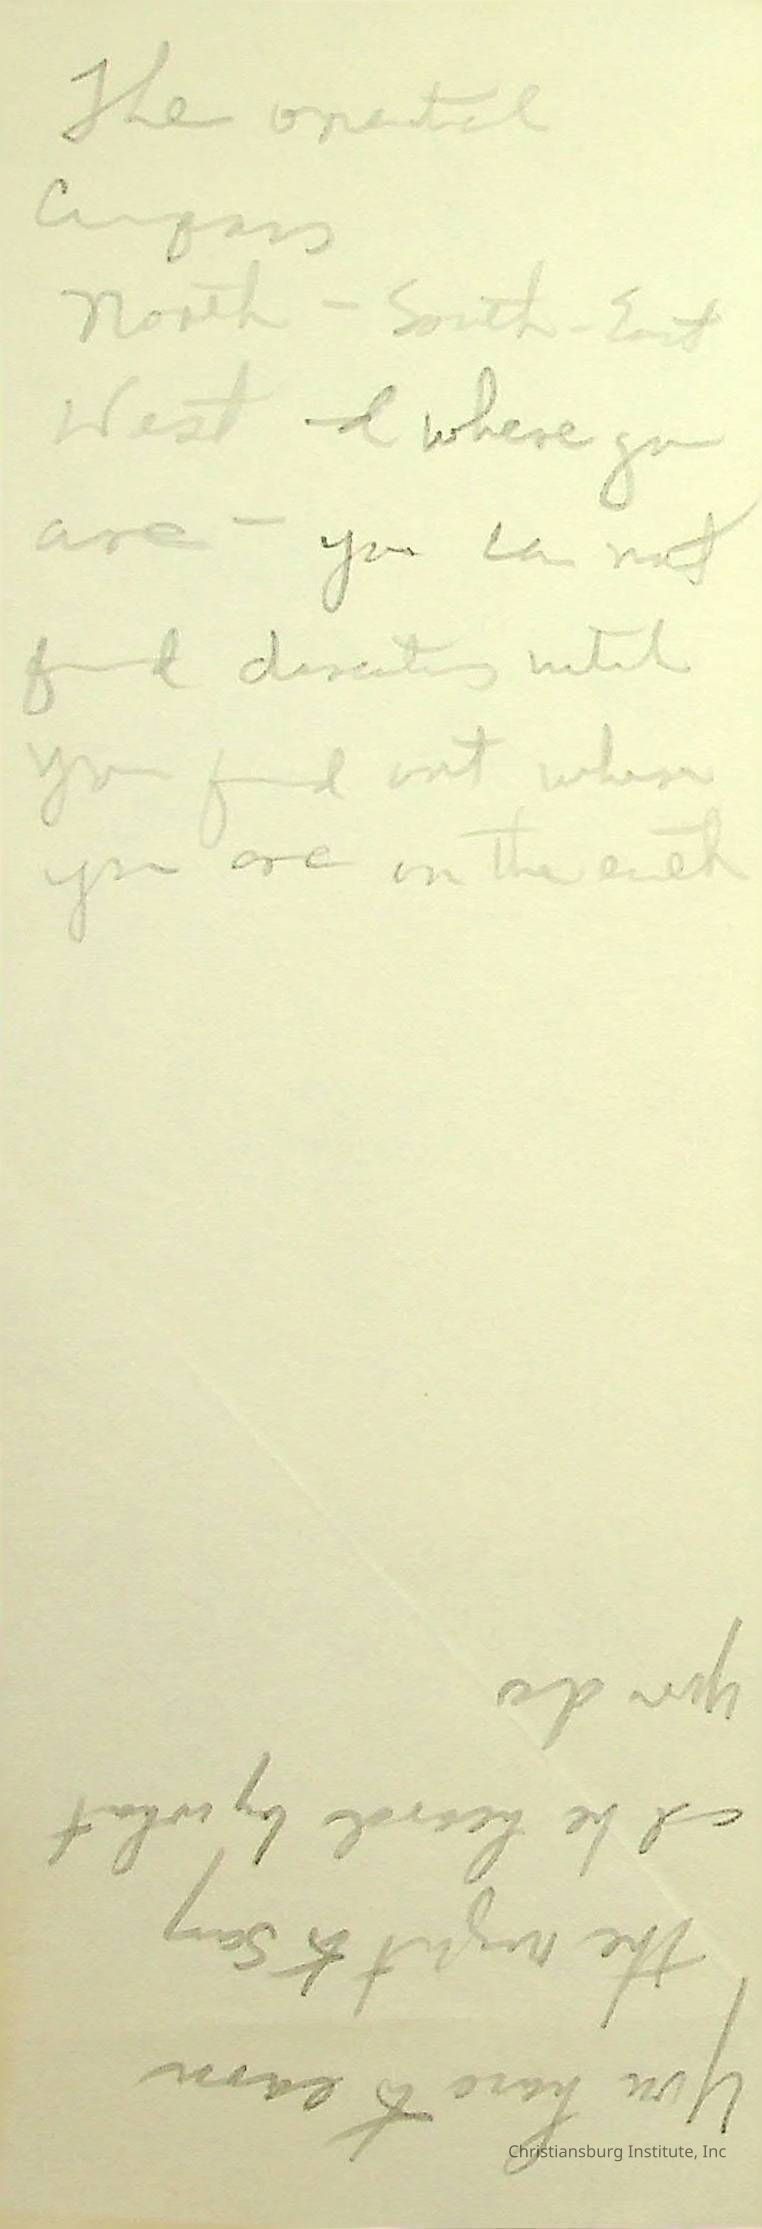 The oriental
Compass
North - South - East
West - & where you
are - you can not
find directions until
you find out where
you are on the earth
You have to earn
the right to say
& be heard by what
you do
Christiansburg Institute, Inc